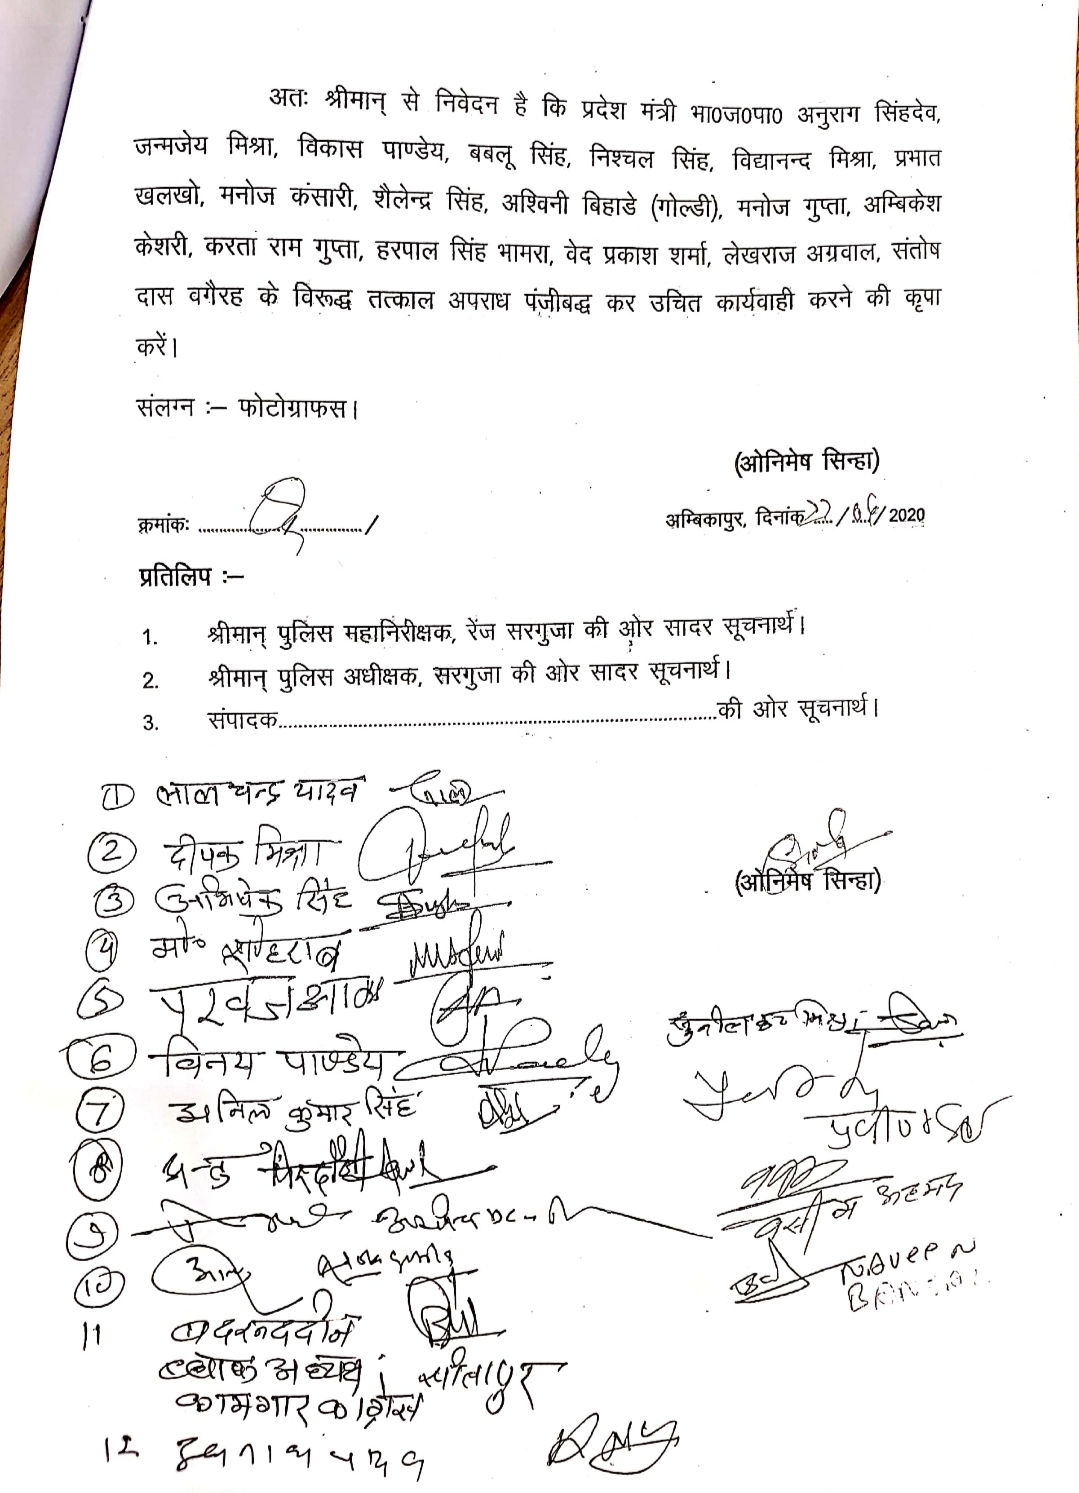 अतः श्रीमान् से निवेदन है कि प्रदेश मंत्री भा0ज0पा0 अनुराग सिंहदेव,
जन्मजेय मिश्रा, विकास पाण्डेय, बबलू सिंह, निश्चल सिंह, विद्यानन्द मिश्रा, प्रभात
खलखो, मनोज कंसारी, शैलेन्द्र सिंह, अश्विनी बिहाडे (गोल्डी), मनोज गुप्ता, अम्बिकेश
केशरी, करता राम गुप्ता, हरपाल सिंह भामरा, वेद प्रकाश शर्मा, लेखराज अग्रवाल, संतोष
दास वगैरह के विरूद्ध तत्काल अपराध पंजीबद्ध कर उचित कार्यवाही करने की कृपा
करें।
संलग्न :– फोटोग्राफस।
(ओनिमेष सिन्हा)
क्रमांकः ............................../
अम्बिकापुर, दिनांक 22/05/2020
प्रतिलिप :–
1. श्रीमान् पुलिस महानिरीक्षक, रेंज सरगुजा की ओर सादर सूचनार्थ।
2. श्रीमान् पुलिस अधीक्षक, सरगुजा की ओर सादर सूचनार्थ।
3. संपादक..........................................................................की ओर सूचनार्थ।
① लाल चन्द्र यादव
② दीपक मिश्रा
(ओनिमेष सिन्हा)
③ अभिषेक सिंह
④ मो० शोहराब
⑤ परवेज आलम
⑥ विनय पाण्डेय
⑦ अनिल कुमार सिंह
⑧
⑨
वसीम अहमद
⑩
NAVEEN
BANSAL
11 बदरुद्दीन
ब्लाक अध्यक्ष सीतापुर
कामगार कांग्रेस
12 यादव